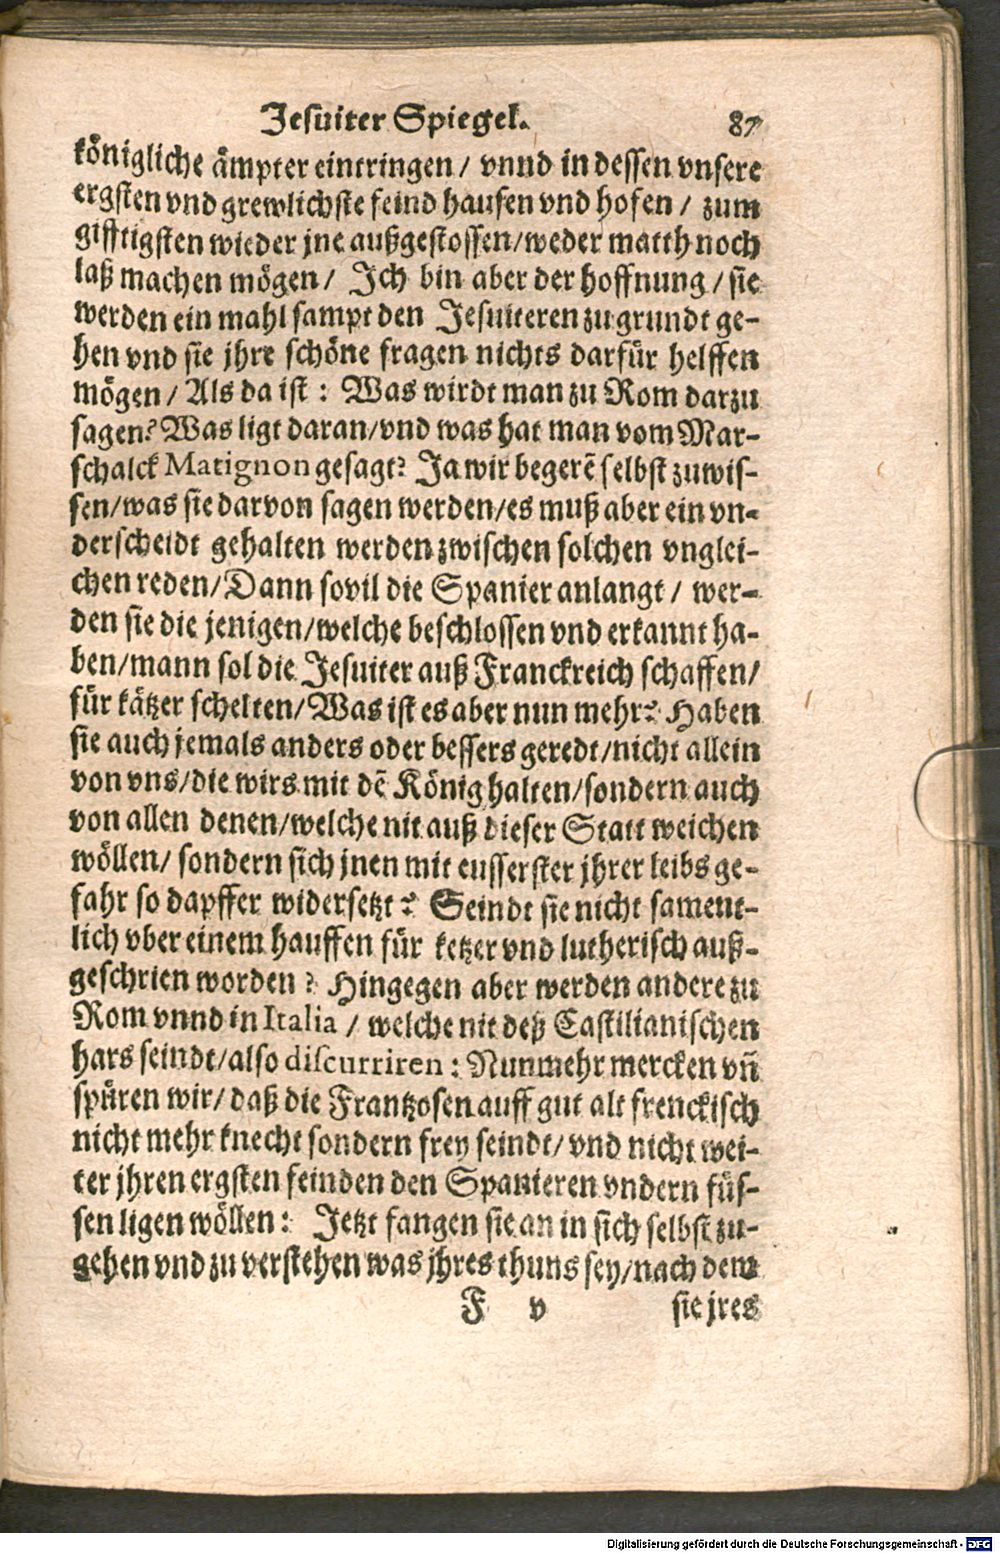 Jesuiter Spiegel. 87
königliche ämpter eintringen / vnnd in dessen vnsere
ergsten vnd grewlichste feind haufen vnd hofen / zum
gifftigsten wieder jne außgestossen/weder matth noch
laß machen mögen / Ich bin aber der hoffnung / sie
werden ein mahl sampt den Jesuiteren zu grundt ge-
hen vnd sie jhre schöne fragen nichts darfür helffen
mögen / Als da ist : Was wirdt man zu Rom darzu
sagen? Was ligt daran/vnd was hat man vom Mar-
schalck Matignon gesagt? Ja wir begerẽ selbst zuwis-
sen/was sie darvon sagen werden/es muß aber ein vn-
derscheidt gehalten werden zwischen solchen vnglei-
chen reden/Dann sovil die Spanier anlangt / wer-
den sie die jenigen/welche beschlossen vnd erkannt ha-
ben/mann sol die Jesuiter auß Franckreich schaffen/
für kätzer schelten/Was ist es aber nun mehr? Haben
sie auch jemals anders oder bessers geredt/nicht allein
von vns/die wirs mit dẽ König halten/sondern auch
von allen denen/welche nit auß dieser Statt weichen
wöllen/ sondern sich jnen mit eusserster jhrer leibs ge-
fahr so dapffer widersetzt? Seindt sie nicht sament-
lich vber einem hauffen für ketzer vnd lutherisch auß-
geschrien worden ? Hingegen aber werden andere zu
Rom vnnd in Italia / welche nit deß Castilianischen
hars seindt/also discurriren : Nunmehr mercken vñ
spüren wir/ daß die Frantzosen auff gut alt frenckisch
nicht mehr knecht sondern frey seindt/ vnd nicht wei-
ter jhren ergsten feinden den Spanieren vndern füs-
sen ligen wöllen : Jetzt fangen sie an in sich selbst zu-
gehen vnd zu verstehen was jhres thuns sey/nach dem
F v sie jres
Digitalisierung gefördert durch die Deutsche Forschungsgemeinschaft - DFG